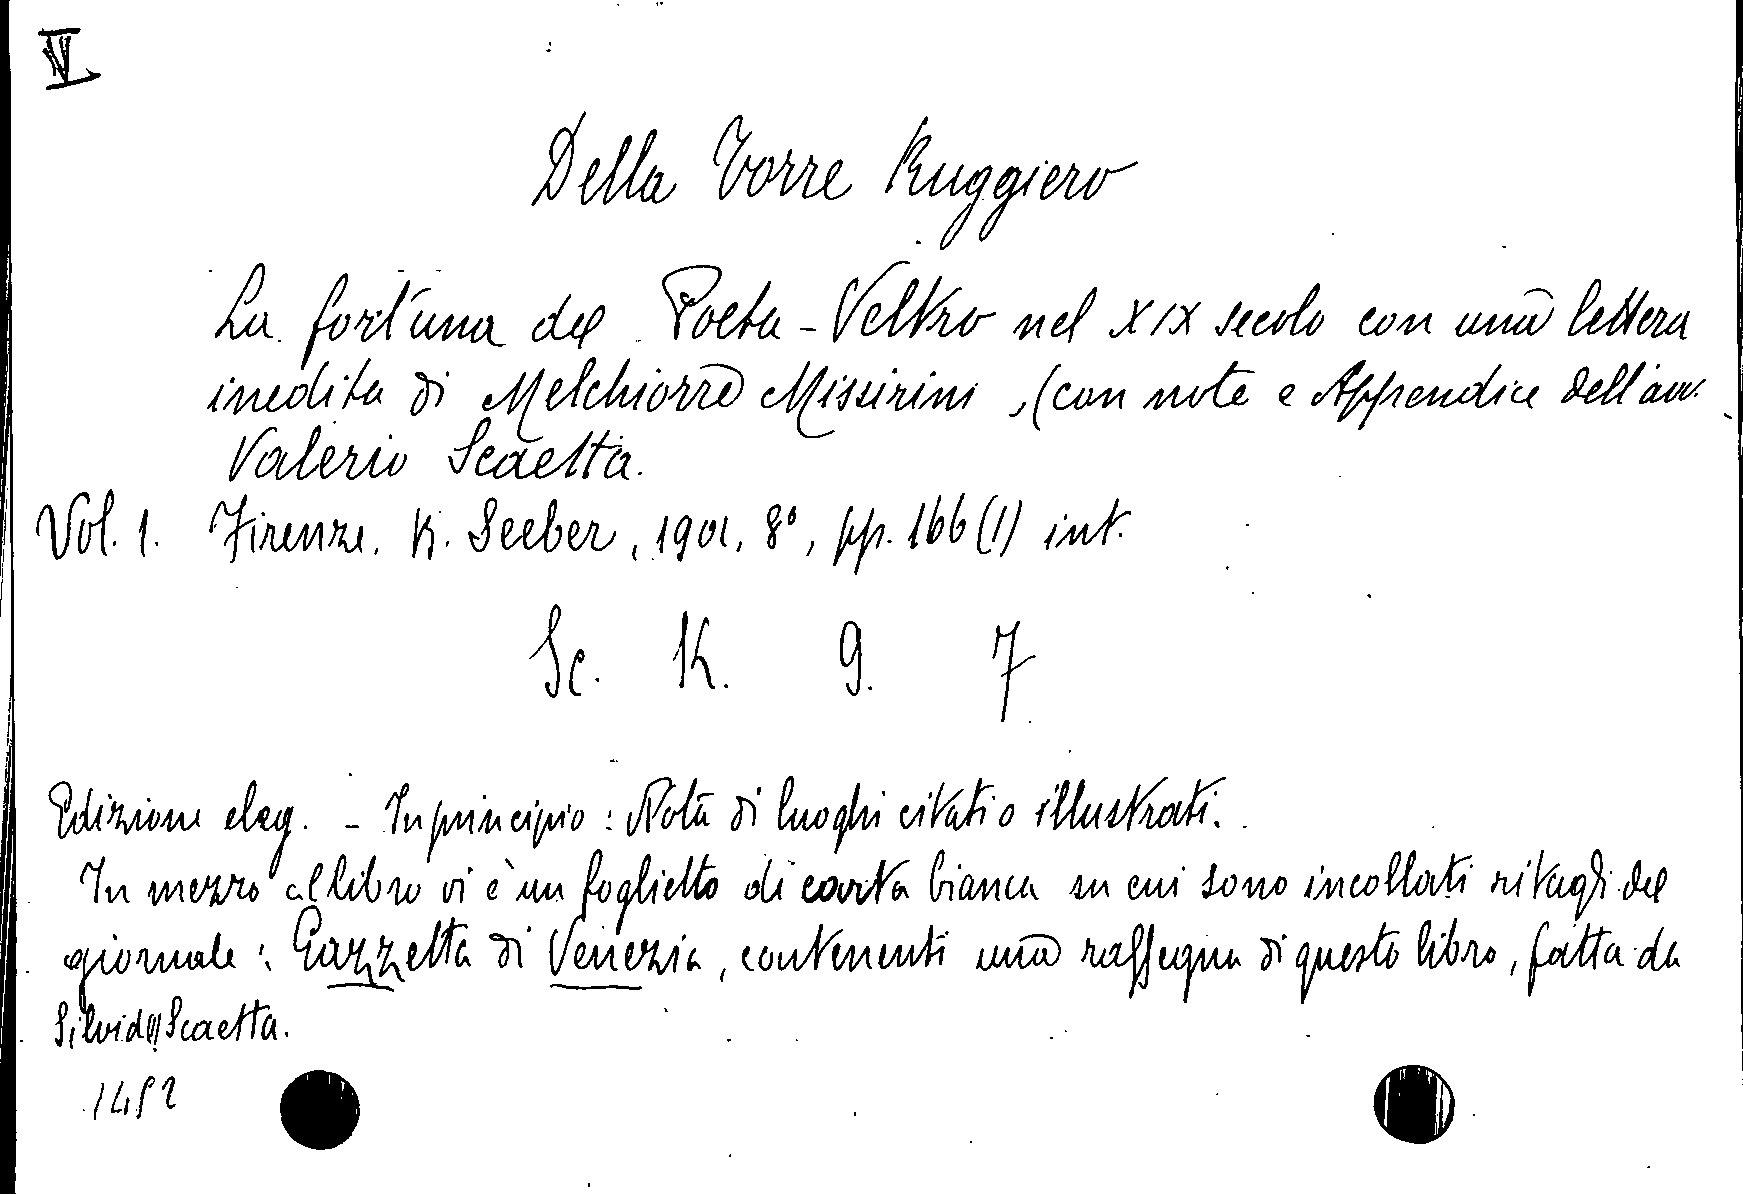 IV
Della Torre Ruggiero
La fortuna del Poeta-Veltro nel XIX secolo con una lettera
inedita di Melchiorre Missirini, (con note e Appendice dell'avv.
Valerio Scaetta.
Vol. 1. Firenze. K. Seeber, 1901, 8°, pp. 166 (1) int.
Sc. K. 9. 7
Edizione eleg. - In principio: Nota di luoghi citati o illustrati.
In mezzo al libro vi è un foglietto di carta bianca su cui sono incollati ritagli del
giornale: Gazzetta di Venezia, contenenti una rassegna di questo libro, fatta da
Scaetta.